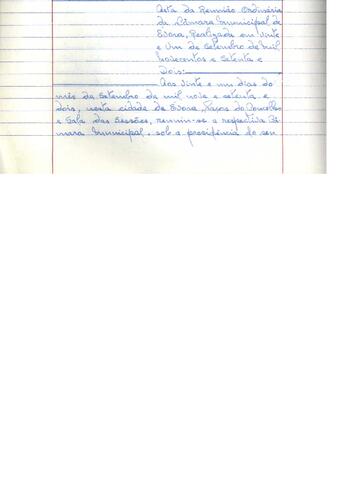 Acta da Reunião Ordinária
da Câmara Municipal de
Évora, Realizada em vinte
e um de Setembro de mil
novecentos e setenta e
dois:
Aos vinte e um dias do
mês de Setembro de mil nove e setenta e
dois, nesta cidade de Évora, Paços do Concelho
e Sala das Sessões, reuniu-se a respectiva Câ
mara Municipal, sob a presidência do seu